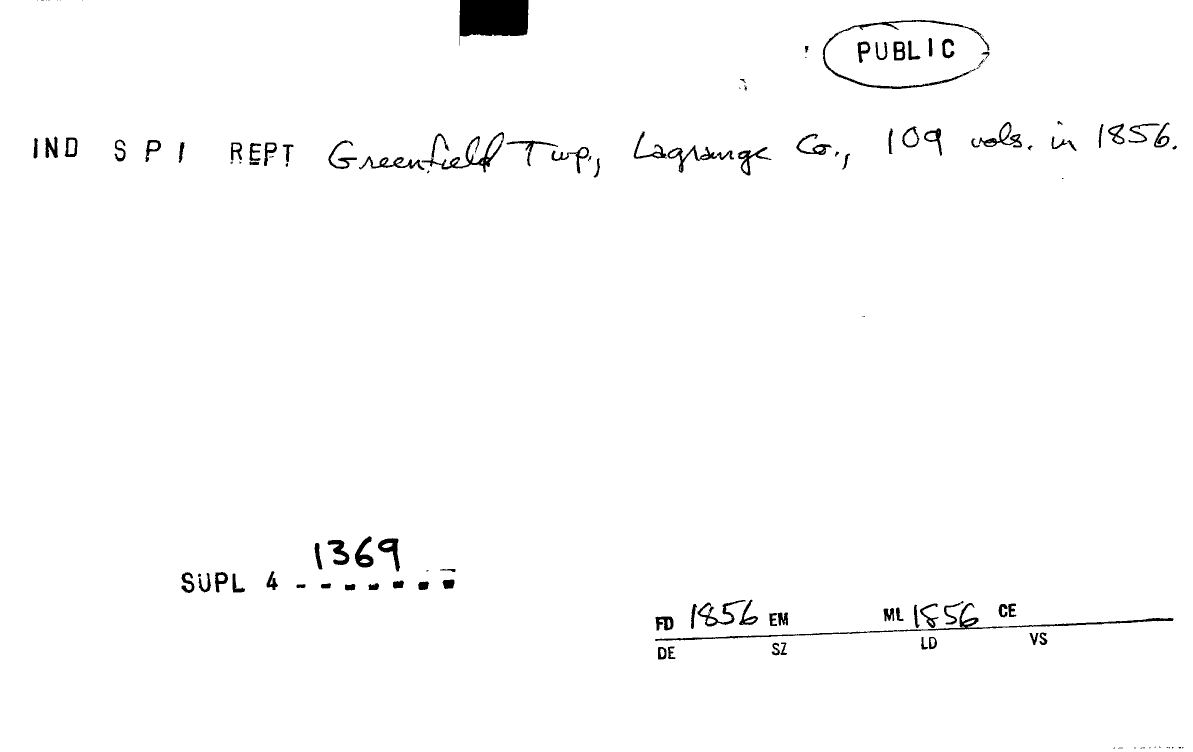 PUBLIC
IND S P I REPT Greenfield Twp, Lagrange Co., 109 vols. in 1856.
1369
SUPL 4 - - - - - - -
FD 1856 EM ML 1856 CE
DE SZ LD VS